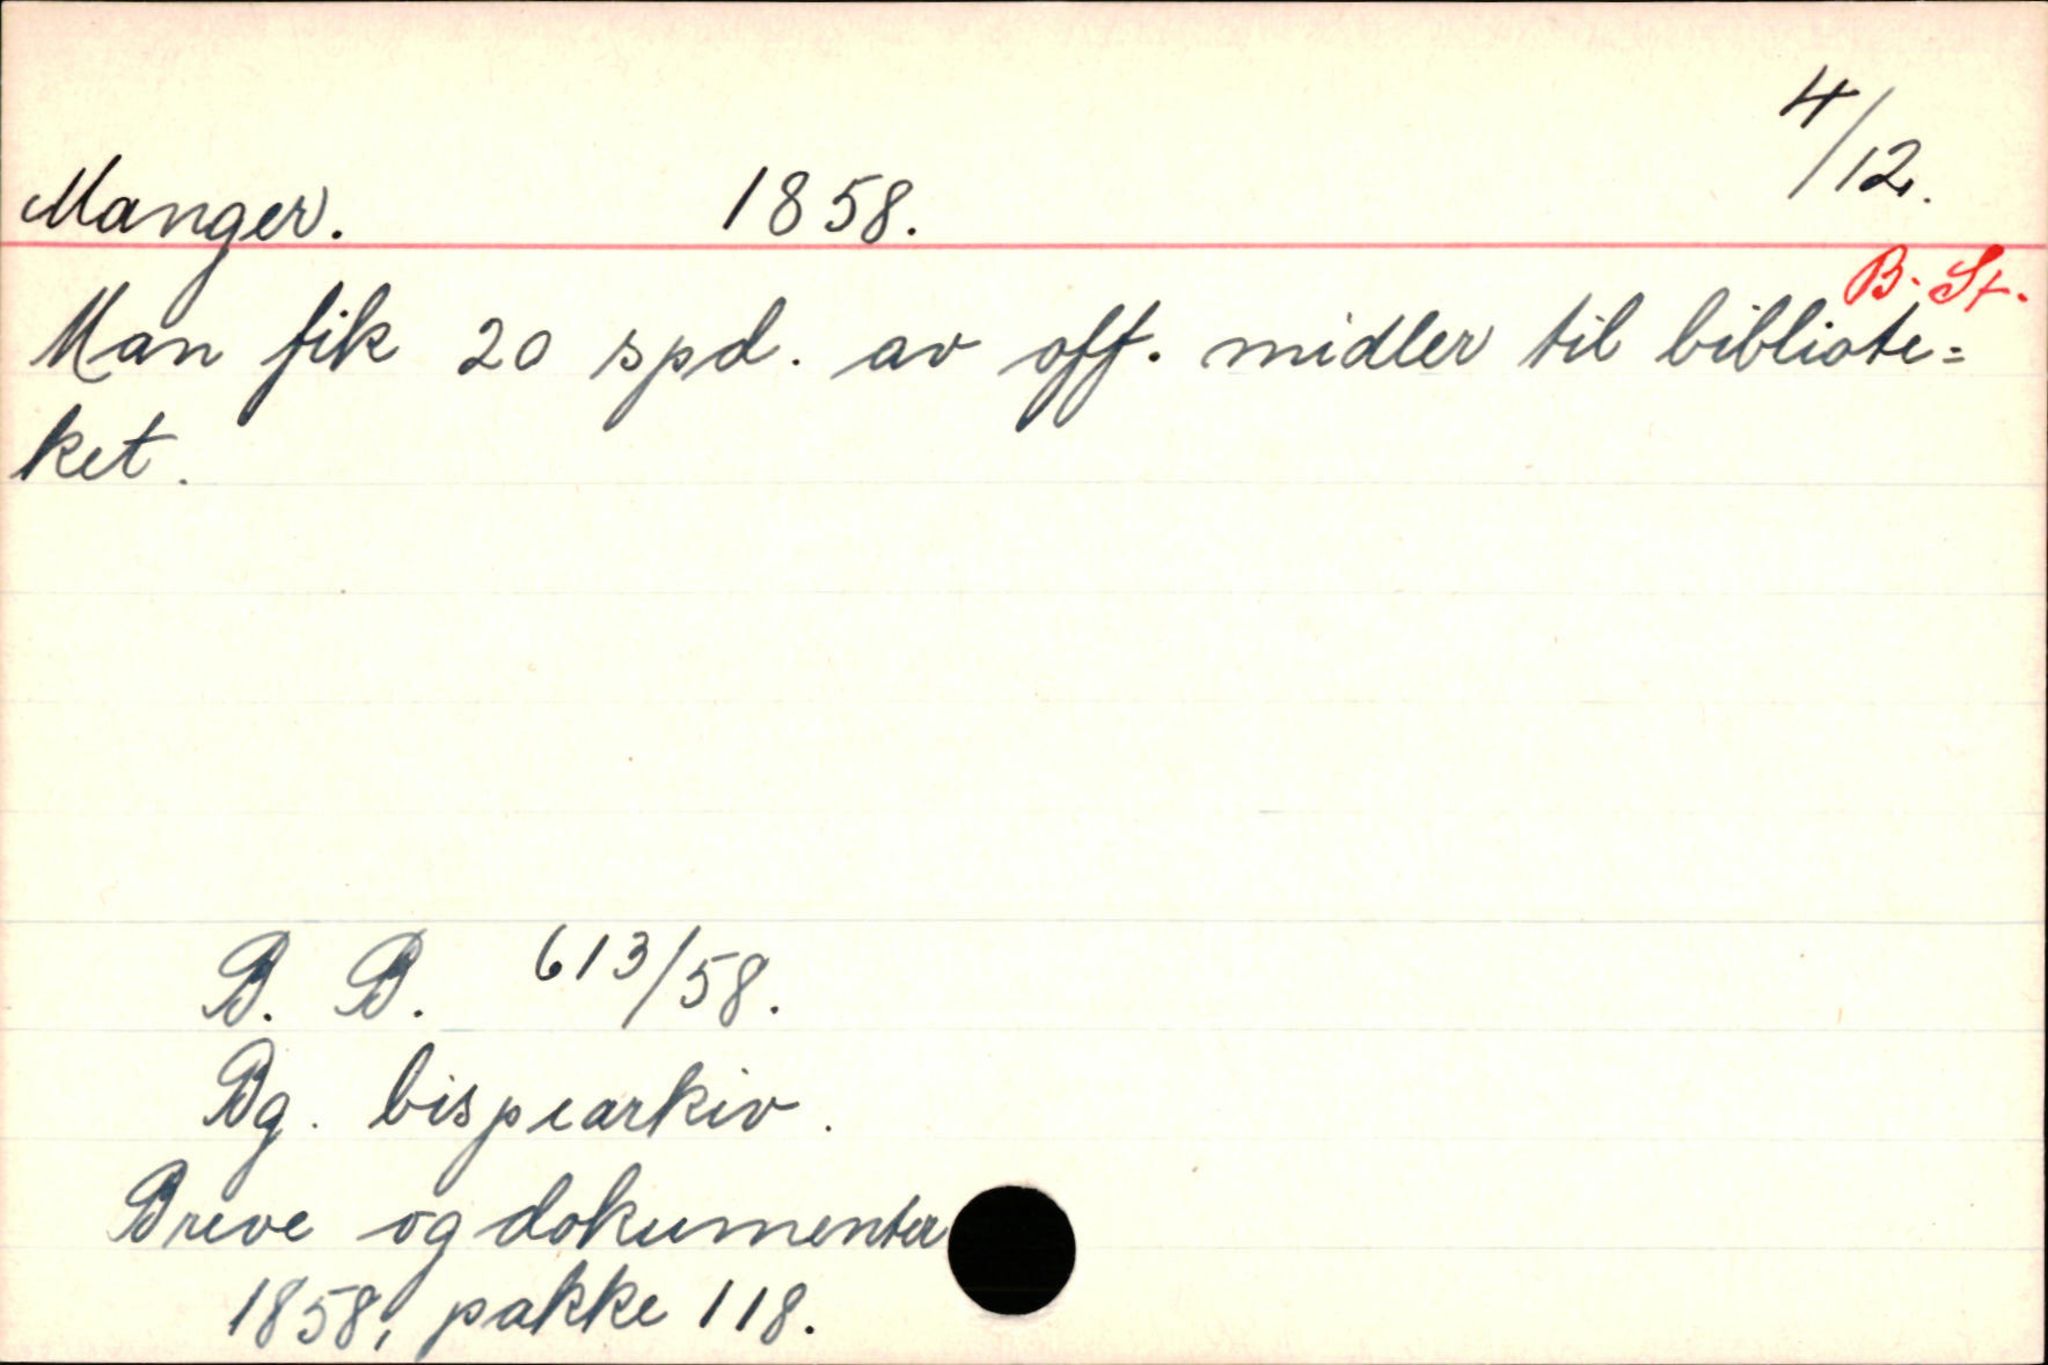 Manger. 1858. 4/12.
B. St.
Man fik 20 spd. av off. midler til bibliote=
ket.
B. B. 613/58.
Bg. bispearkiv.
Breve og dokumenter
1858, pakke 118.